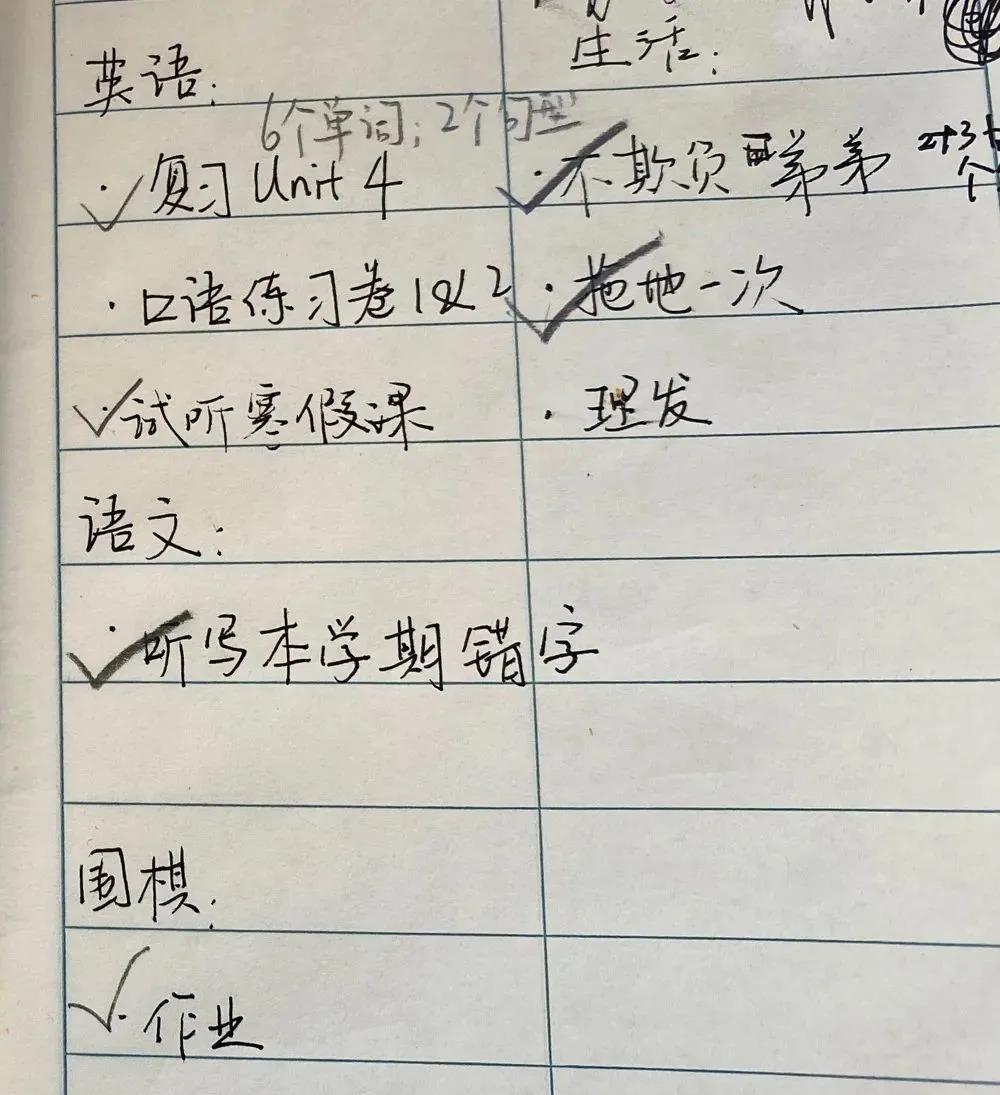 英语:
6个单词;2个句型
✓复习Unit 4
·口语练习卷1&2
✓试听寒假课
语文:
✓听写本学期错字
围棋:
✓作业
生活:
✓不欺负弟弟 2+3+
个
✓拖地一次
·理发